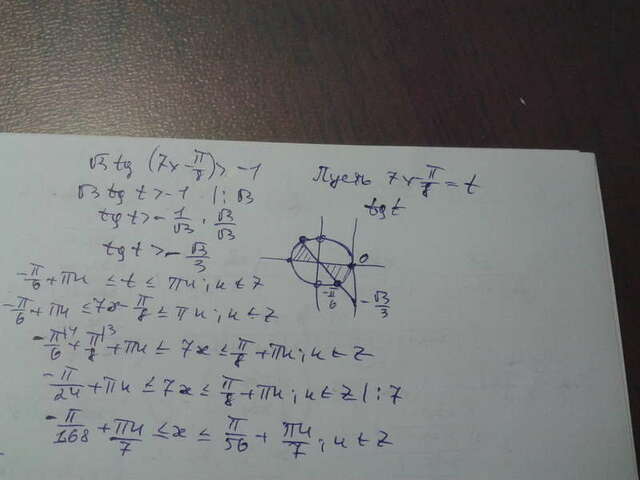 √3 tg (7x - π/8) > -1
Пусть 7x - π/8 = t
√3 tg t > -1 |: √3
tg t
tg t > - 1/√3 · √3/√3
tg t > - √3/3
0
-π/6
-√3/3
-π/6 + πn ≤ t ≤ πn; n ∈ Z
-π/6 + πn ≤ 7x - π/8 ≤ πn; n ∈ Z
-π/6|4 + π/8|3 + πn ≤ 7x ≤ π/8 + πn; n ∈ Z
-π/24 + πn ≤ 7x ≤ π/8 + πn; n ∈ Z |: 7
-π/168 + πn/7 ≤ x ≤ π/56 + πn/7; n ∈ Z